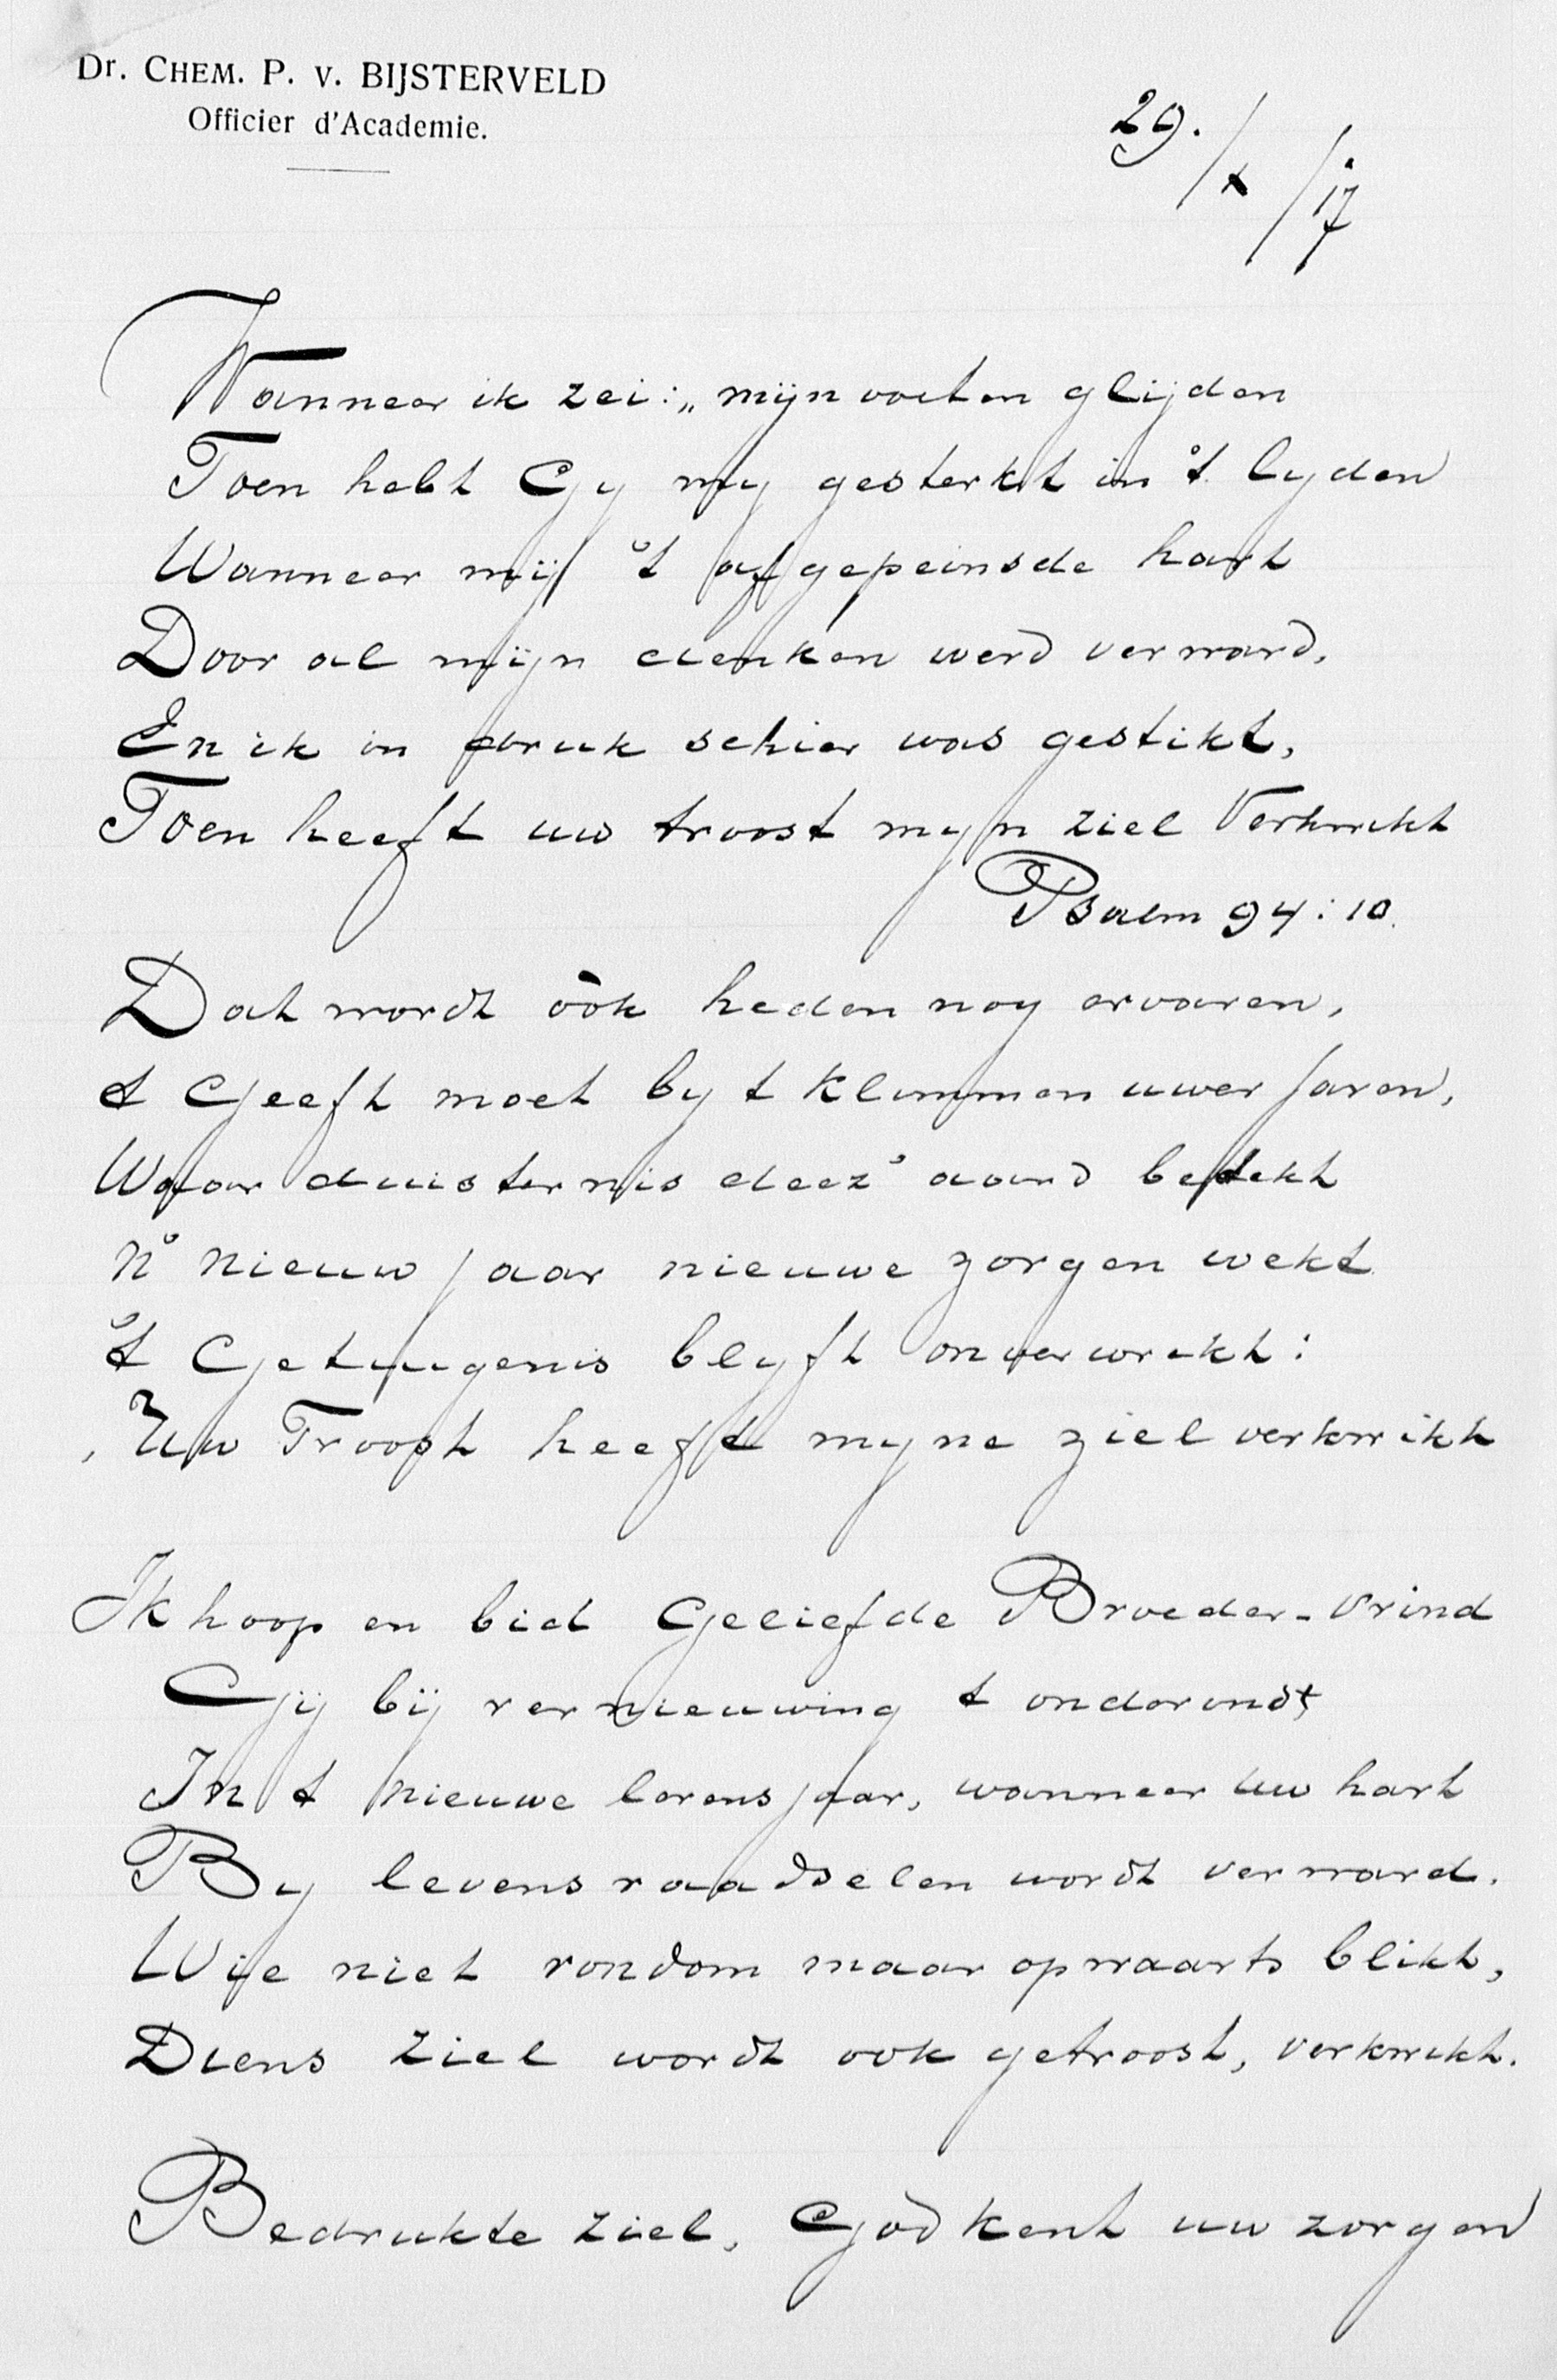 Dr. CHEM. P. v. BIJSTERVELD
Officier d'Academie.
29./x/17
Wanneer ik zei: „mijn voeten glijden
Toen hebt Gy my gesterkt in 't lyden
Wanneer mij 't afgepeinsde hart
Door al mijn denken werd verward,
En ik in druk schier was gestikt,
Toen heeft uw troost myn ziel Verkwikt
Psalm 94:10.
Dat wordt òòk heden nog ervaren,
t Geeft moet by t Klimmen uwer Jaren,
Waar duisternis deez' aard bedekt
N' Nieuw jaar nieuwe zorgen wekt
't Getuigenis blyft onverwrikt:
, Uw Troost heeft myne ziel verkwikt
Ik hoop en bid Geliefde Broeder-Vrind
Gij bij vernieuwing t ondervindt
In t nieuwe levensjaar, wanneer Uw hart
By levensraadselen wordt verward.
Wie niet rondom maar opwaarts blikt,
Diens ziel wordt ook getroost, verkwikt.
Bedrukte ziel, God kent uw zorgen